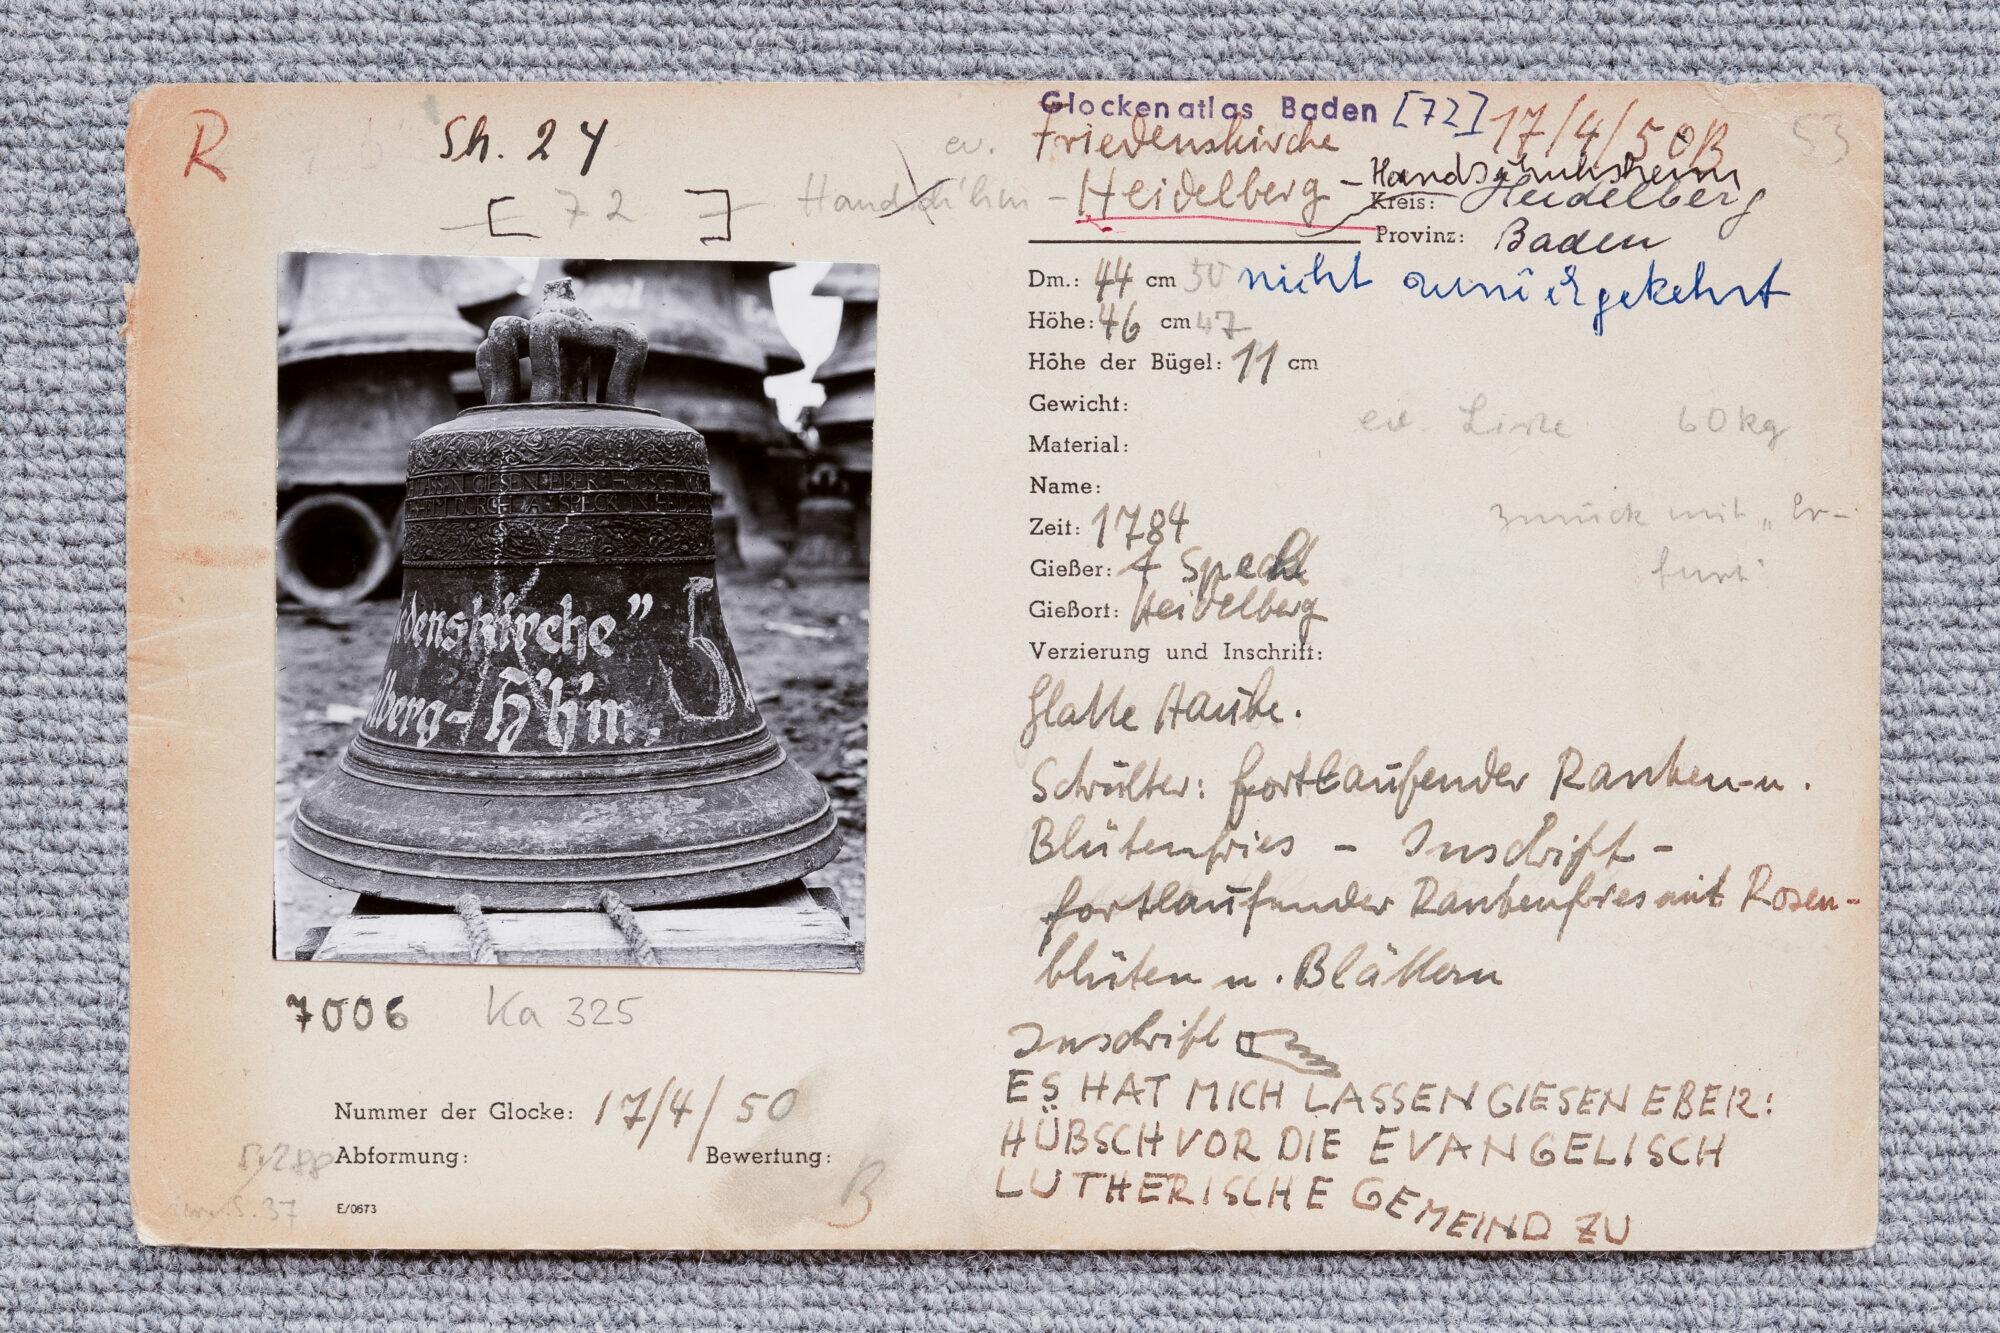 R
Sh. 24
[ 72 ]
Glockenatlas Baden [72] 17/4/50B
53
ev. Friedenskirche
Handsch'hm - Heidelberg - Handschuhsheim
Kreis: Heidelberg
Provinz: Baden
Dm.: 44 cm 50 nicht zurückgekehrt
Höhe: 46 cm 47
Höhe der Bügel: 11 cm
Gewicht: ev. Liste 60 kg
Material:
Name:
Zeit: 1784 zurück mit "Er-
furt"
Gießer: A Specht
Gießort: Heidelberg
Verzierung und Inschrift:
Glatte Haube.
Schulter: fortlaufender Ranken-u.
Blütenfries - Inschrift -
fortlaufender Rankenfries mit Rosen-
blüten u. Blättern
Inschrift
ES HAT MICH LASSEN GIESEN EBER:
HÜBSCH VOR DIE EVANGELISCH
LUTHERISCHE GEMEIND ZU
LASSEN GIESEN EBER HÜBSCH VOR
DURCH A SPECK IN HEIDE
denskirche"
lberg-H'h'm.
5
7006 Ka 325
Nummer der Glocke: 17/4/50
Abformung:
Bewertung:
B
S. 37
E/0673